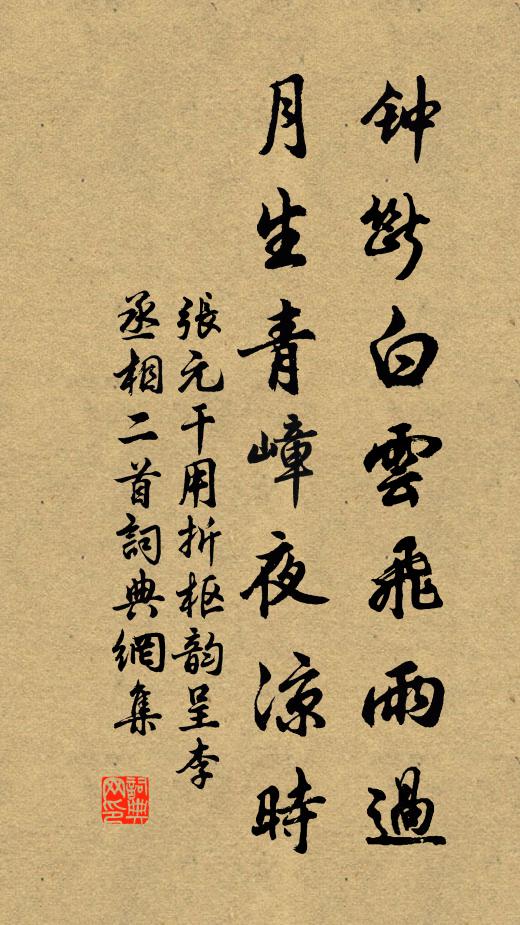 钟断白雲飛雨過
月生青嶂夜涼時
張元干用折枢韵呈李
丞相二首詞典網集
詞典网印